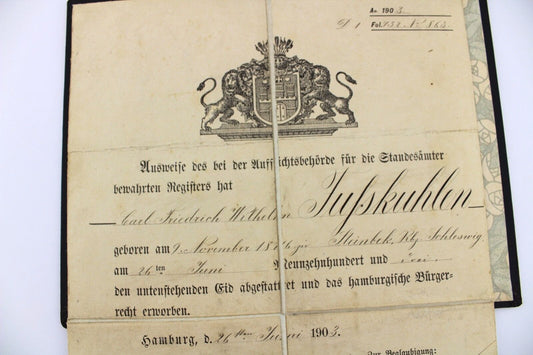 An 1903
D 1 Fol. 132 No 863
Ausweise des bei der Aufsichtsbehörde für die Standesämter
bewahrten Registers hat
Carl Friedrich Wilhelm Tusskuhlen
geboren am 9. November 1876 zu Steinbek, Rbz Schleswig
am 26ten Juni Neunzehnhundert und drei
den untenstehenden Eid abgestattet und das hamburgische Bürger-
recht erworben.
Hamburg, d. 26ten Juni 1903.
Zur Beglaubigung: